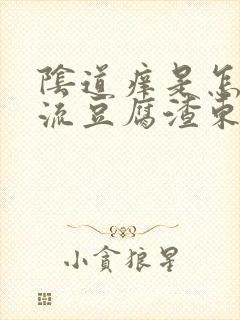 陰道癢是怎
流豆腐渣東
小貪狼星